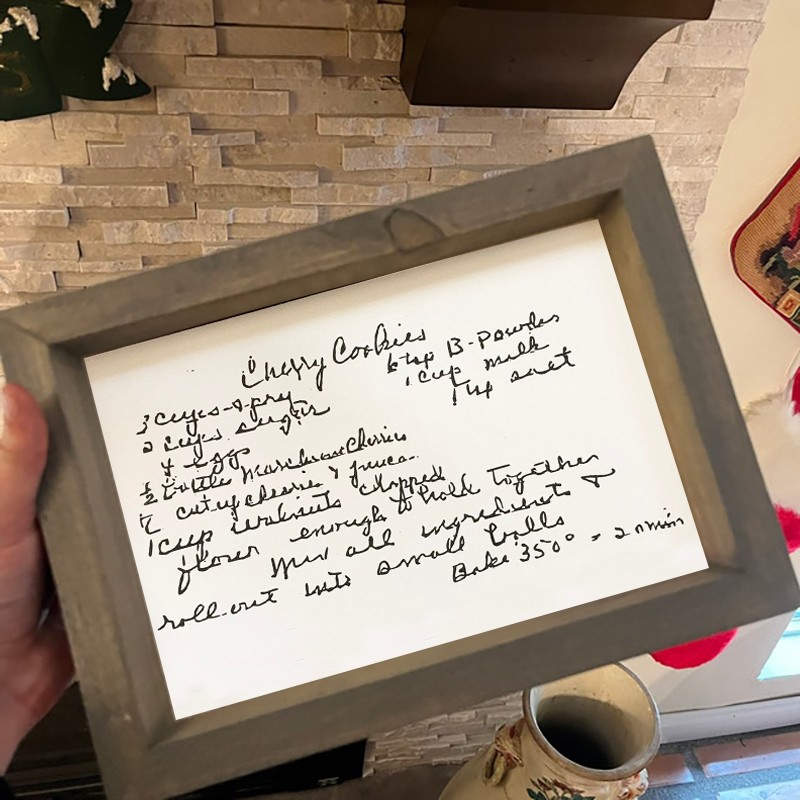 Cherry Cookies
3 cups spry
2 cups sugar
4 eggs
1/2 bottle Maraschino Cherries
cut up cherries & juice
1 cup walnuts chopped
flour enough to hold together
Mix all ingredients &
roll out into small balls
Bake 350° - 20 min
6 tsp B-Powder
1 cup milk
1 tsp salt